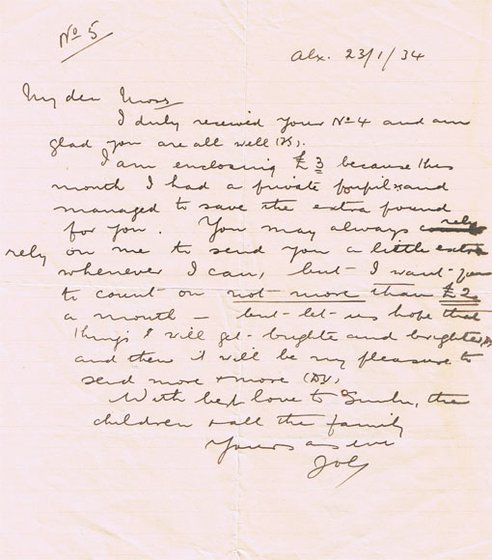 No 5
Alx. 23/1/34
My dear Moss
I duly received your No 4 and am
glad you are all well (DV).
I am enclosing £3 because this
month I had a private pupil and
managed to save the extra pound
for you. You may always rely
rely on me to send you a little extra
whenever I can, but I want you
to count on not more than £2
a month — but let us hope that
things will get brighter and brighter (DV)
and then it will be my pleasure to
send more & more (DV)
With best love to the
children & all the family
Yours as ever